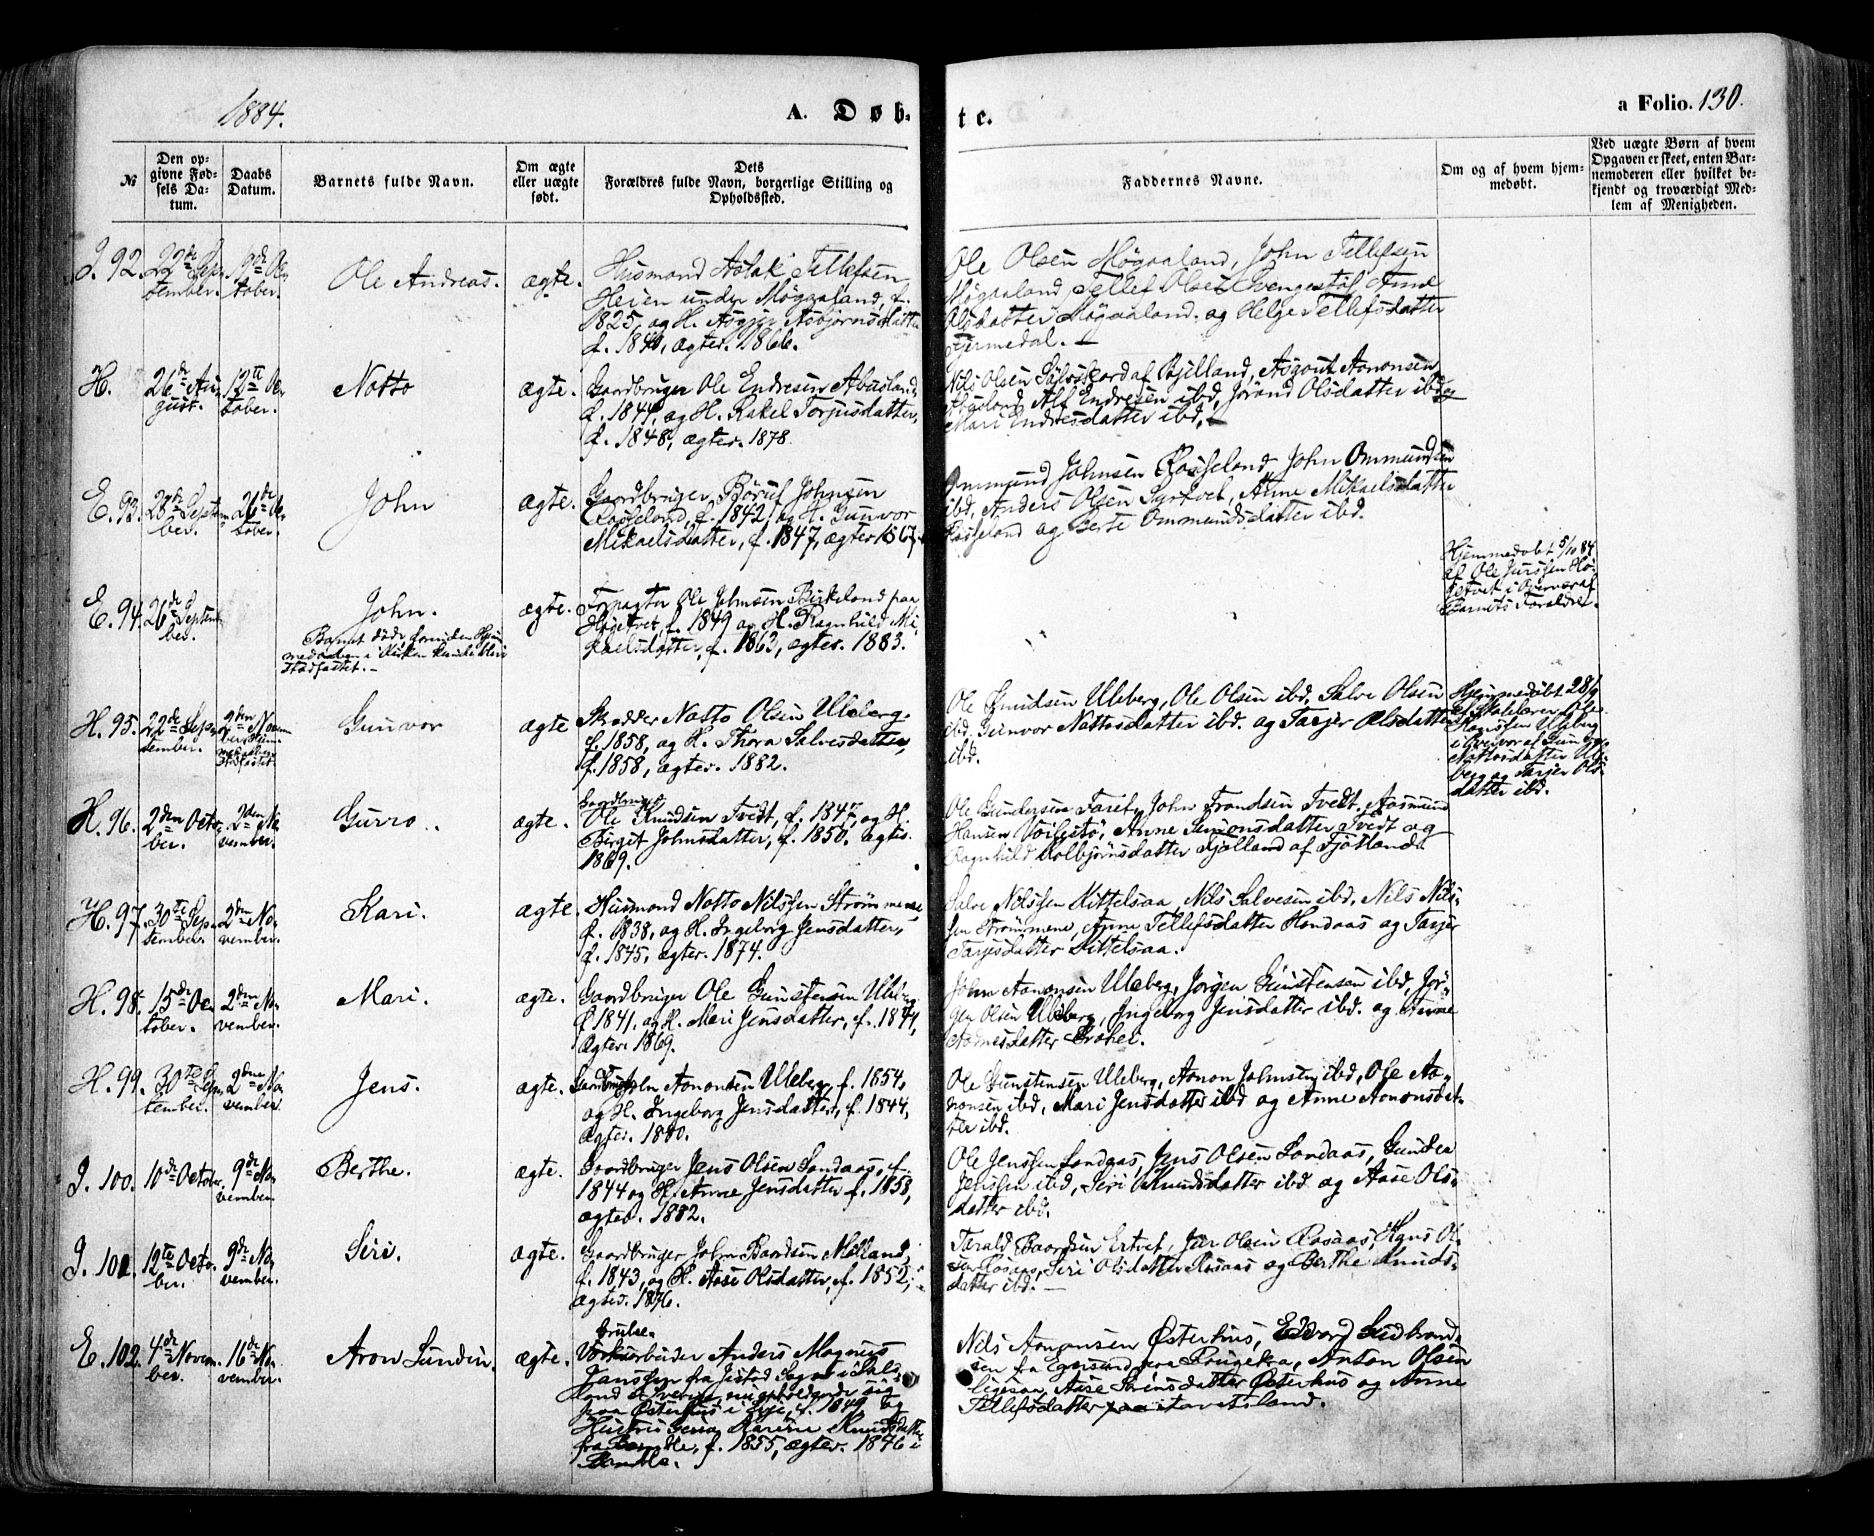 1884.
A. Døb-
te.
a Folio. 130.
№
Den op-
givne Fød-
sels Da-
tum.
Daabs
Datum.
Barnets fulde Navn.
Om ægte
eller uægte
født.
Dets
Forældres fulde Navn, borgerlige Stilling og
Opholdssted.
Faddernes Navne.
Om og af hvem hjem-
medøbt.
Ved uægte Børn af hvem
Opgaven er skeet, enten Bar-
nemoderen eller hvilket be-
kjendt og troværdigt Med-
lem af Menigheden.
J. 92.
22de Sep-
tember.
19de Oc-
tober.
Ole Andreas.
ægte.
Husmand Aslak Tellefsen
Heien under Møgaaland, f.
1825, og H. Asgjær Asbjørnsdatter
f. 1840, ægtev. 1866.
Ole Olsen Møgaaland, John Tellefsen
Møgaaland, Tellef Olsen Anne
Olsdatter Møgaaland. og Helge Tellefsdatter
H.
26de Au-
gust.
12te Oc-
tober.
Notto
ægte.
Gaardbruger Ole Endresen Abusland,
f. 1844, og H. Rakel Torjusdatter,
f. 1848, ægtev. 1878.
Nils Olsen af Bjelland, Asgout Aanonsen
Abusland, Alf Endresen ibd, Jørand Olsdatter ibd og
Mari Endresdatter ibd.
E. 93.
23de Septem-
ber.
26de Oc-
tober.
John
ægte.
Gaardbruger Børuf Johnsen
Røiseland, f. 1842, og H. Gunvor
Mikaelsdatter, f. 1847, ægtev 1867.
Ommund Johnsen Røiseland, John Ommundsen
ibd, Anders Olsen Syrtvet, Anne Mikaelsdatter
Røiseland og Berte Ommundsdatter ibd.
E. 94.
26de Septem-
ber.
John.
Barnet døde forinden Hjem-
medaaben i Kirken kunde blive
stadfæstet.
ægte.
Forpagter Ole Johnsen Birkeland paa
Høgetvet, f. 1849 og H. Ragnhild Mi-
kaelsdatter, f. 1863, ægtev. 1883.
Hjemmedøbt 5/10 84
af Ole Jenssen Hø-
getvet i Overvær af
Barnets Forældre.
H. 95.
22de Sep-
tember.
2den Novem-
ber
stadfæstet.
Gunvor
ægte
Skrædder Notto Olsen Uleberg.
f. 1858, og H. Thora Salvesdatter,
f. 1858, ægtev. 1882.
Ole Knudsen Uleberg, Ole Olsen ibd, Salve Olsen
ibd. Gunvor Nottosdatter ibd. og Tarjer Olsdatter
ibd.
Hjemmedøbt 28/9
af Skolelærer Ole
Uleberg
i Overvær af Gunvor
Nottosdatter Ule-
berg og Tarjer Ols-
datter ibd.
H. 96.
2den Octo-
ber.
2den No-
vember.
Gurro.
ægte.
Gaardbruger
Ole Knudsen Tvedt, f. 1847, og H.
Birgit Johnsdatter, f. 1850. ægtev.
1869.
Ole Gundersen John Frandsen Tvedt, Aasmund
Hansen Anne Simonsdatter Tvedt og
Ragnhild Kolbjørnsdatter Fjelland af Fjotland.
H. 97.
30te Sep-
tember.
2den No-
vember.
Kari.
ægte.
Husmand Notto Nilssen Strømmene
f. 1838, og H. Ingeborg Jensdatter,
f. 1845, ægtev. 1874.
Salve Nilssen Kittelsaa, Nils Salvesen ibd, Nils Nils-
sen Strømmene, Anne Tellefsdatter Handaas og Tarjer
Tarjesdatter Kittelsaa.
H. 98.
15de Oc-
tober.
2den No-
vember.
Mari.
ægte.
Gaardbruger Ole Gunstensen Uleberg,
f 1841, og H. Mari Jensdatter, f. 1844,
ægtev 1869.
John Aanonsen Uleberg, Jørgen Gunstensen ibd, Jør-
gen Olsen Uleberg, Ingeborg Jensdatter ibd. og Anne
Aanonsdatter
H. 99.
30te Sep-
tember.
2den No-
vember.
Jens.
ægte.
Gaardbruger John Aanonsen Uleberg, f. 1854,
og H. Ingeborg Jensdatter, f. 1844,
ægtev. 1880.
Ole Gunstensen Uleberg, Aanon Johnsen ibd, Ole Aa-
nonsen ibd, Mari Jensdatter ibd og Anne Aanonsdat-
ter ibd.
J. 100.
10de October.
9de No-
vember.
Berthe.
ægte.
Gaardbruger Jens Olsen Sandaas, f.
1844 og H. Anne Jensdatter f. 1858,
ægtev. 1882.
Ole Jenssen Sandaas, Jens Olsen Sandaas, Gunder
Jenssen ibd, Siri Knudsdatter ibd og Aase Ols-
datter ibd.
J. 101.
12te Octo-
ber.
9de No-
vember.
Siri.
ægte.
Gaardbruger John Baardsen Mølland,
f. 1843, og H. Aase Olsdatter, f. 1852,
ægtev. 1876.
Tarald Baardsen Ertvet, Jær Olsen Rosaas, Hans Ol-
sen Rosaas, Siri Olsdatter Rosaas og Berthe Knuds-
datter ibd.
E. 102.
4de Novem-
ber.
16de No-
vember.
Aron Sundin.
ægte.
Grube-
arbeider Anders Magnus
Jansson fra Sogn i
i Sverige, nu opholdende sig
paa Østerhus i Evje, f. 1849 og
Hustru Karine Knudsdatter
fra Bamble, f. 1855, ægtev. 1876 i
Bamble.
Nils Aanonsen Østerhus, Edvard Gudbrand-
sen fra Egersund, Anton Olsen
Aase Sørensdatter Østerhus og Anne
Tellefsdatter